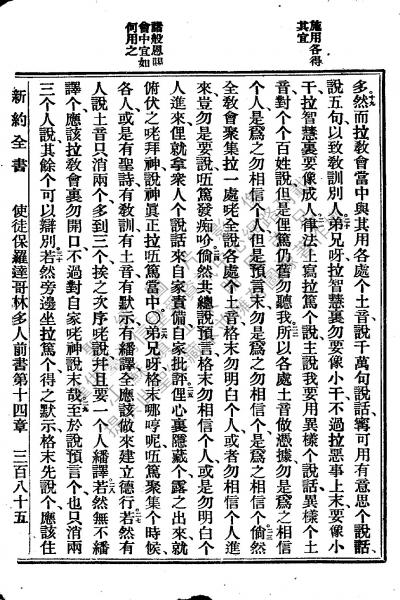 施用各得
其宜
諸般恩賜
會中宜如
何用之
多然而拉敎會當中與其用各處个土音說千萬句說話寗可用有意思个說話
說五句以致敎訓別人弟兄呀拉智慧裏勿要像小干不過拉惡事上末要像小
干拉智慧裏要像成人律法上寫拉篤个說主說我要用異樣个說話異樣个土
音對个个百姓說但是俚篤仍舊勿聽我所以各處土音做憑據勿是爲之相信
个人是爲之勿相信个人但是預言末勿是爲之勿相信个人是爲之相信个倘然
全敎會聚集拉一處咾全說各處个土音格末勿明白个人或者勿相信个人進
來豈勿是要說唔篤發痴吤倘然共總說預言格末勿相信个人或是勿明白个
人進來俚就拿衆人个說話來自家責備自家批評俚心裏隱藏个露之出來就
俯伏之咾拜神說神眞正拉唔篤當中〇弟兄呀格末哪哼呢唔篤聚集个時候
各人或是有聖詩有敎訓有土音有默示有繙譯全應該做來建立德行若然有
人說土音只消兩个多到三个挨之次序咾說并且要一个人繙譯若然無不繙
譯个應該拉敎會裏勿開口不過對自家咾神說末哉至於說預言个也只消兩
三个人說其餘个可以辯別若然旁邊坐拉篤个得之默示格末先說个應該住
新約全書 使徒保羅達哥林多人前書第十四章 三百八十五